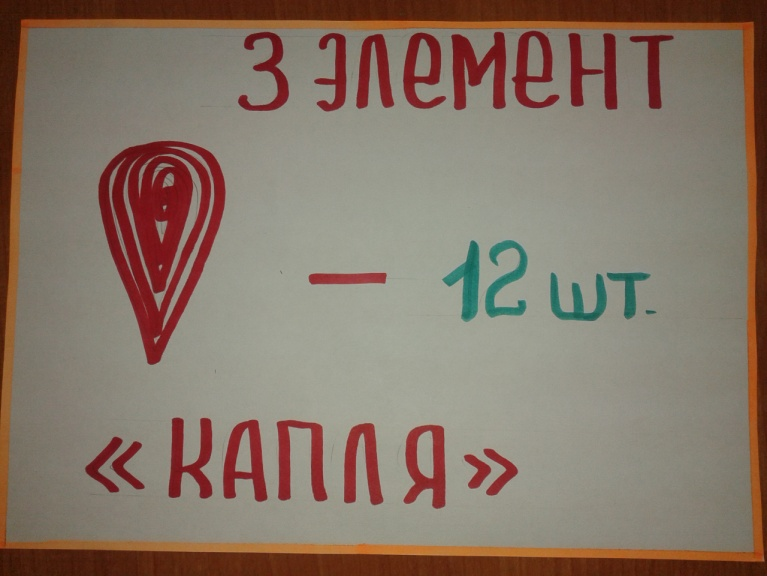 3 ЭЛЕМЕНТ
— 12 шт.
«КАПЛЯ»